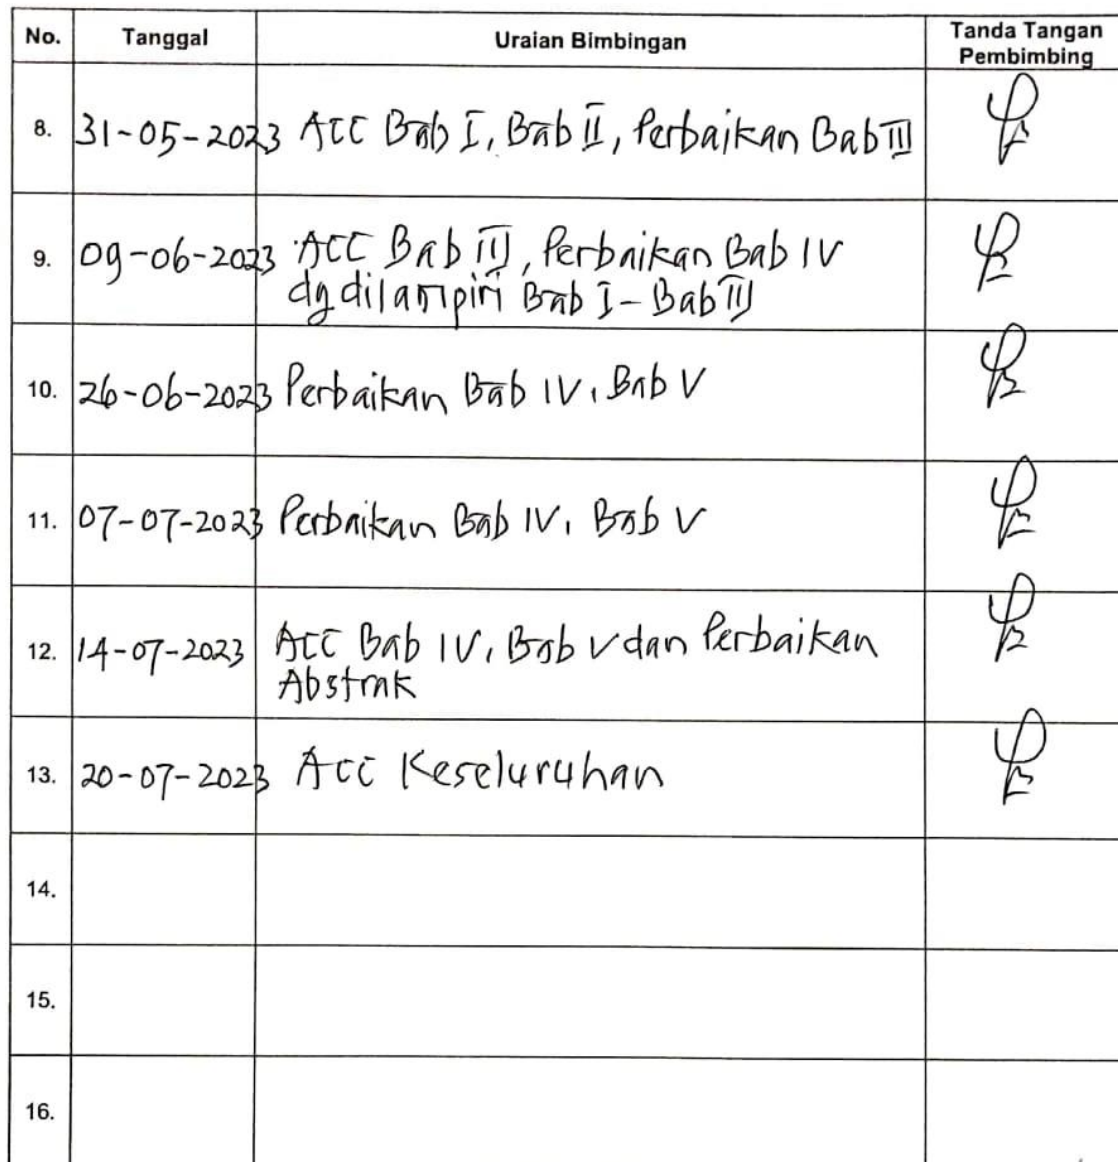 No. Tanggal Uraian Bimbingan Tanda Tangan
Pembimbing
8. 31-05-2023 Acc Bab I, Bab II, Perbaikan Bab III
9. 09-06-2023 Acc Bab III, Perbaikan Bab IV
dg dilampiri Bab I - Bab III
10. 26-06-2023 Perbaikan Bab IV, Bab V
11. 07-07-2023 Perbaikan Bab IV, Bab V
12. 14-07-2023 Acc Bab IV, Bab V dan Perbaikan
Abstrak
13. 20-07-2023 Acc Keseluruhan
14.
15.
16.